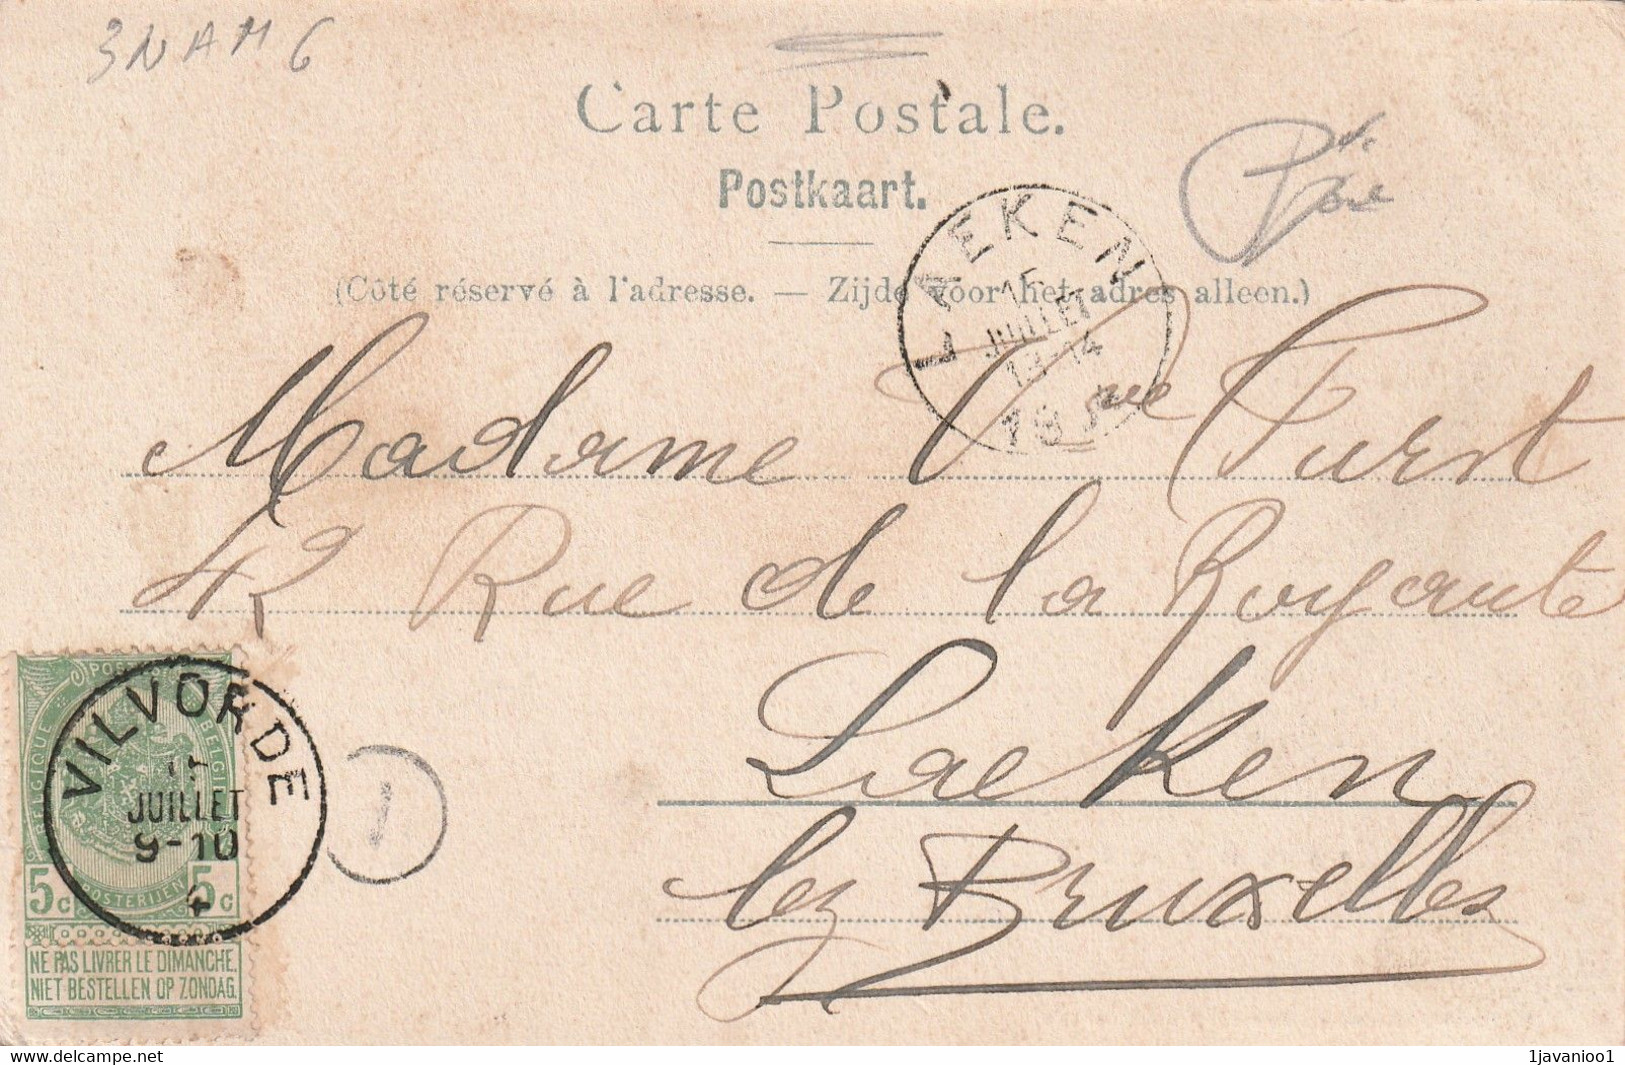 3NAM6
Carte Postale.
Postkaart.
(Côté réservé à l'adresse. — Zijde voor het adres alleen.)
LAEKEN
15
JUILLET
13-14
Madame Vve Purnt
42 Rue de la Royauté
Laeken
lez Bruxelles
VILVORDE
15
JUILLET
9-10
1
POSTES
BELGIQUE
BELGIË
5c 5c
POSTERIJEN
NE PAS LIVRER LE DIMANCHE.
NIET BESTELLEN OP ZONDAG.
www.delcampe.net
1javanioo1